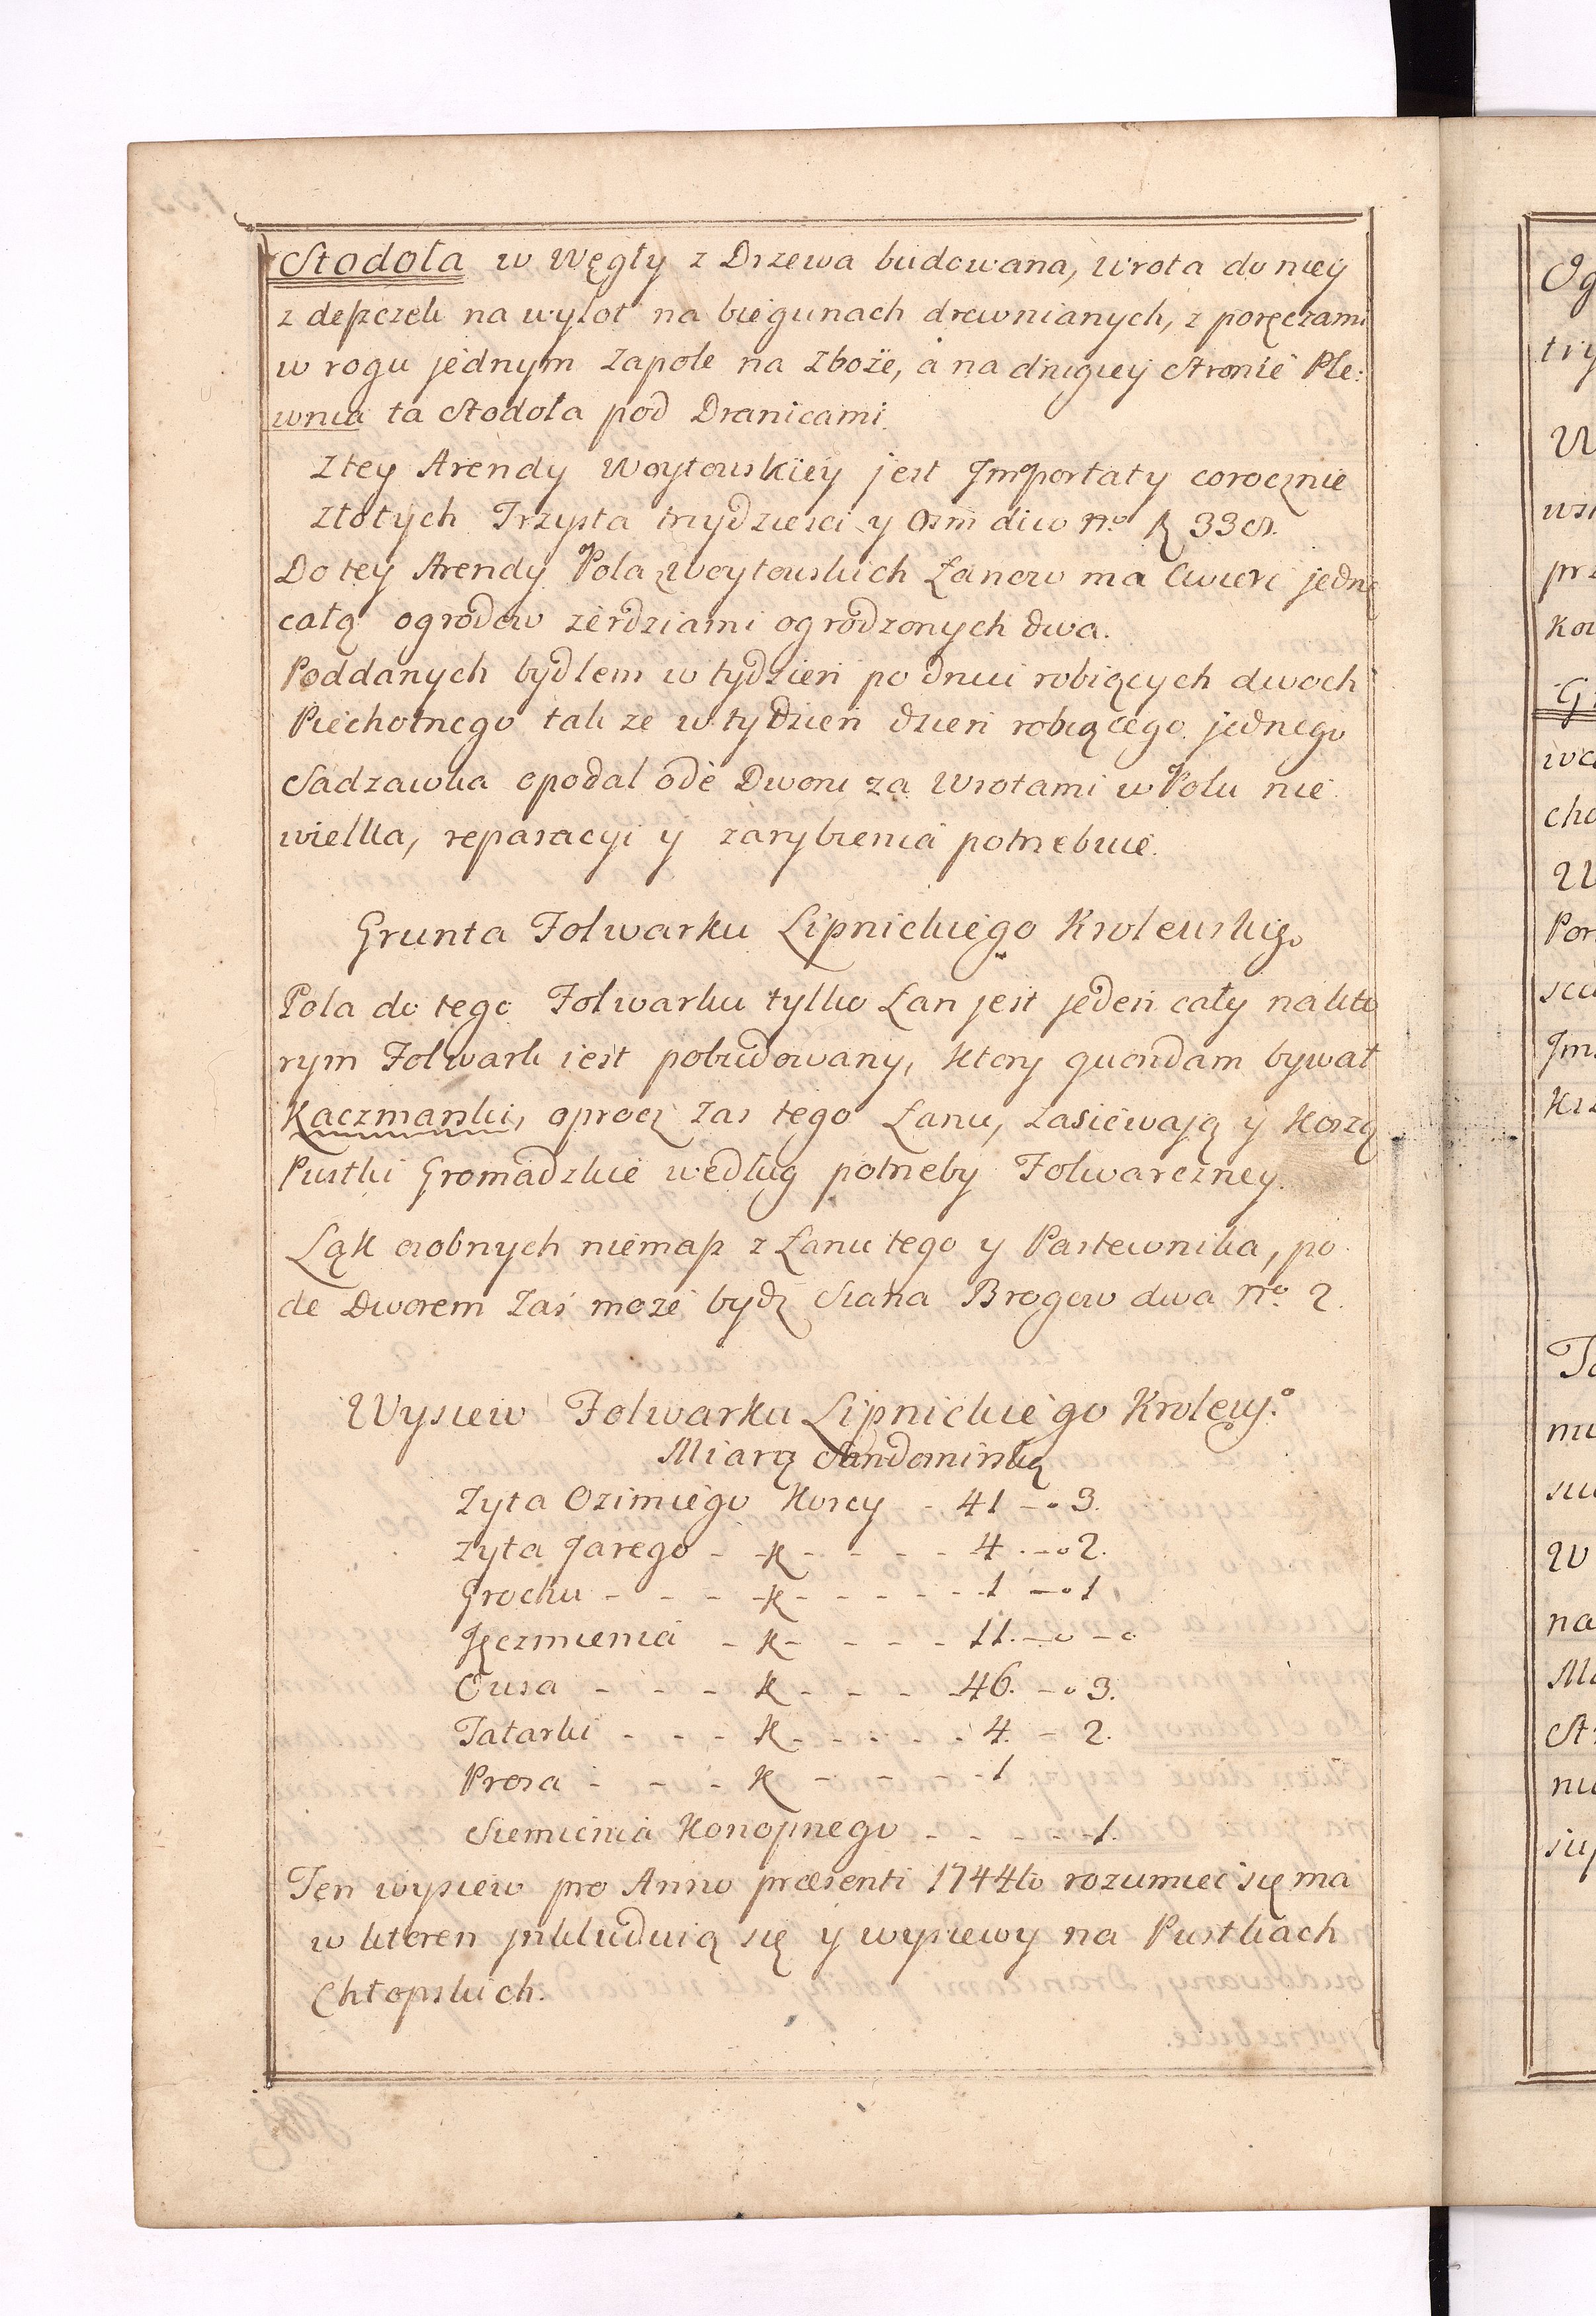 Stodoła w Węgły z Drzewa budowana, wrota do niey
z deszczek na wylot na biegunach drewnianych, z poręczami
w rogu jednym Zapole na Zboże, a na drugiey Stronie Ple:
wnia ta Stodoła pod Dranicami.
Z tey Arendy Woytowskiey jest Importaty corocznie
złotych Trzysta trzydziesci y Osm dico No
Do tey Arendy Pola Woytowskich Łanow ma Cwierć jednę
całą ogrodow zerdziami ogrodzonych dwa.
Poddanych bydlem w tydzień po dniu robiących dwoch
Piechotnego tak ze w tydzień dzień robiącego jednego
Sadzawka opodal ode Dworu za Wrotami w Polu nie
wielka, reparacyi y zarybienia potrzebuie.
Grunta Folwarku Lipnickiego Krolewskiego
Pola do tego Folwarku tylko Łan jest jeden cały na kto
rym Folwark iest pobudowany, ktory quondam bywał
Kaczmarski, oprocz zas tego Łanu, zasiewaią y Koszą
Pustki Gromadzkie według potrzeby Folwarczney.
Łąk osobnych niemasz z Łanu tego y Pastewnika, po
de Dworem Zaś może bydz Siana Brogow dwa No. 2.
Wysiew Folwarku Lipnickiego Krolews:o
Miarą Sandomirską
Zyta Ozimiego Korcy - 41 - . 3.
Zyta Jarego - - K - - - - - 4 . - . 2.
Grochu - - - - K - - - - - - 1 - . 1.
Jęczmienia - K - - - - 11. - . - .
Owsa - - - K - - - - 46. - . 3.
Tatarki - - - K - - - - - 4. - 2.
Prosa - - - K - - - - - 1
Siemienia Konopnego - - - - - 1.
Ten wysiew pro Anno præsenti 1744to rozumieć się ma
w ktoren inkluduią się y wysiewy na Pustkach
Chłopskich.